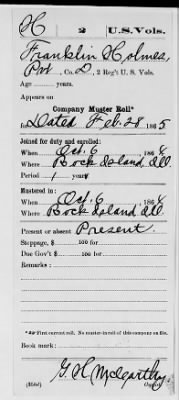 H 2 U.S. Vols.
Franklin Holmes
Pvt, Co. D, 2 Reg't U. S. Vols.
Age years.
Appears on
Company Muster Roll*
for Dated Feb. 28 1865
Joined for duty and enrolled:
When Oct. 6 1864
Where Rock Island, Ill.
Period 1 years
Mustered in:
When Oct. 6 1864
Where Rock Island, Ill.
Present or absent Present.
Stoppage, $ 100 for
Due Gov't $ 100 for
Remarks:
* First current roll. No muster-in roll of this company on file.
Book mark:
G. H. McCarthy
Copyist.